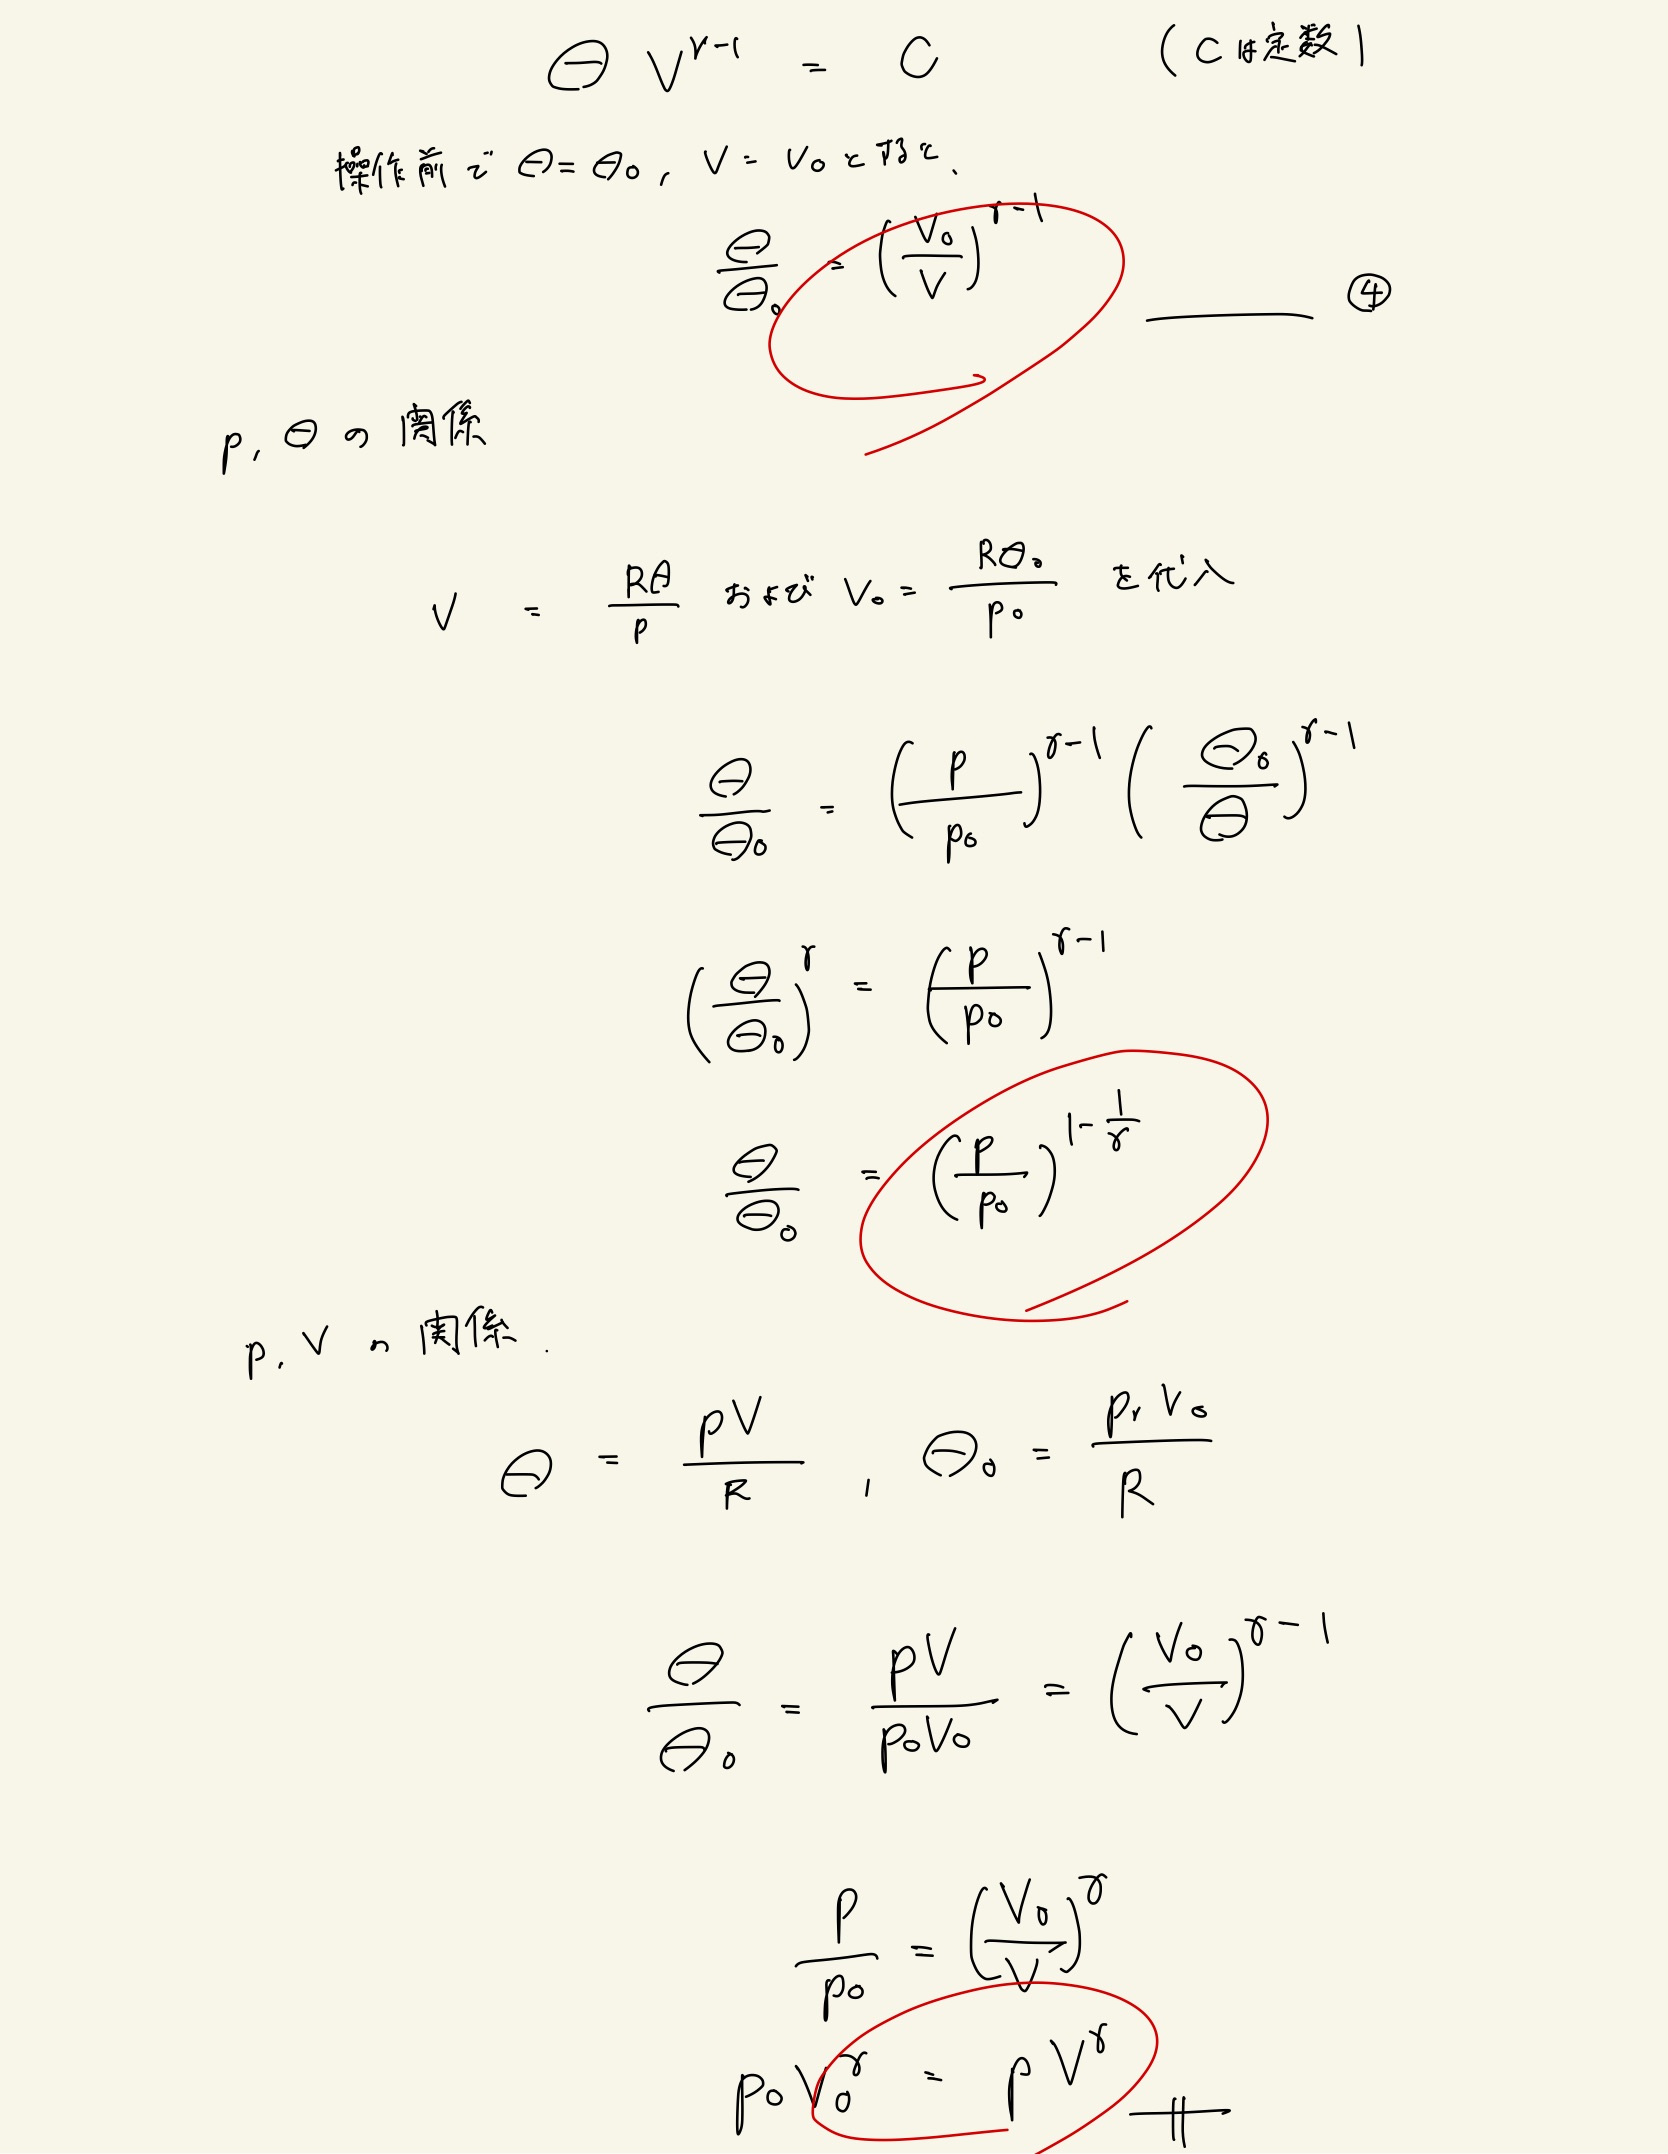 Θ V^{γ-1} = C (Cは定数)
操作前で Θ = Θ₀, V = V₀ とすると、
Θ/Θ₀ = (V₀/V)^{γ-1} ④
p, Θ の 関係
V = RΘ/p および V₀ = RΘ₀/p₀ を代入
Θ/Θ₀ = (p/p₀)^{γ-1} (Θ₀/Θ)^{γ-1}
(Θ/Θ₀)^γ = (p/p₀)^{γ-1}
Θ/Θ₀ = (p/p₀)^{1-1/γ}
p, V の 関係.
Θ = pV/R , Θ₀ = pᵣV₀/R
Θ/Θ₀ = pV/p₀V₀ = (V₀/V)^{γ-1}
p/p₀ = (V₀/V)^γ
p₀V₀^γ = pV^γ